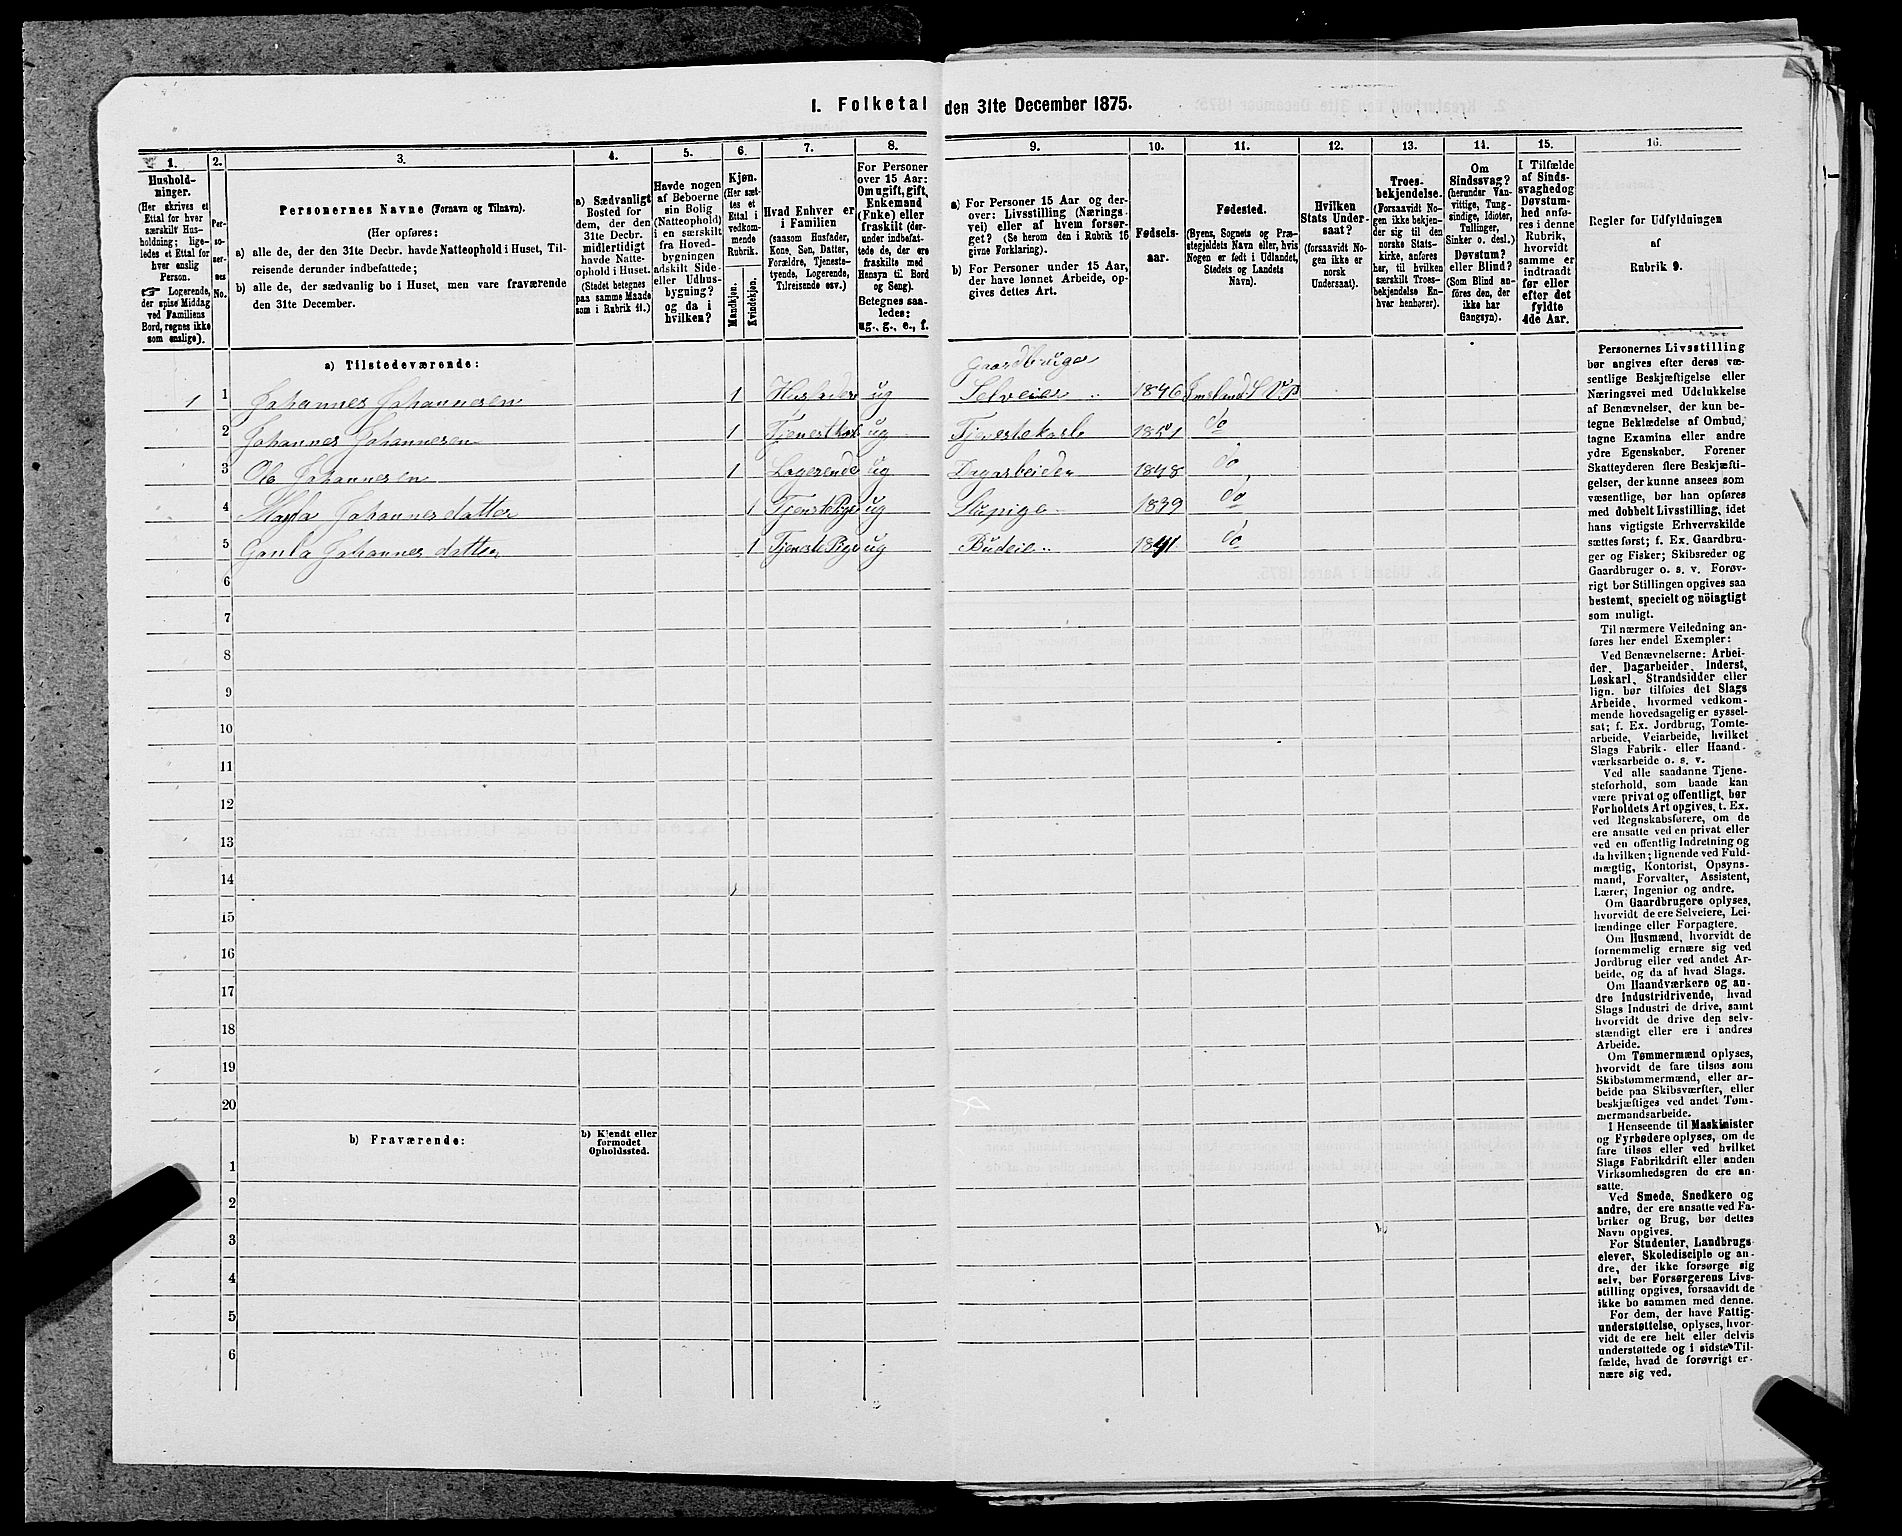 I. Folketal den 31te December 1875.
1. 2. 3. 4. 5. 6. 7. 8. 9. 10. 11. 12. 13. 14. 15. 16.
Hushold-
ninger.
(Her skrives et
Ettal for hver
særskilt Hus-
holdning; lige-
ledes et Ettal for
hver enslig
Person.
☞ Logerende,
der spise Middag
ved Familiens
Bord, regnes ikke
som enslige).
Per-
so-
ner-
nes
No.
Personernes Navne (Fornavn og Tilnavn).
(Her opføres:
a) alle de, der den 31te Decbr. havde Natteophold i Huset, Til-
reisende derunder indbefattede;
b) alle de, der sædvanlig bo i Huset, men vare fraværende
den 31te December.
a) Sædvanligt
Bosted for
dem, der den
31te Decbr.
midlertidigt
havde Natte-
ophold i Huset.
(Stedet betegnes
paa samme Maade
som i Rubrik 11.)
Havde nogen
af Beboerne
sin Bolig
(Natteophold)
i en særskilt
fra Hoved-
bygningen
adskilt Side-
eller Udhus-
bygning?
og da i
hvilken?
Kjøn.
(Her sæt-
tes et
Ettal i
vedkom-
mende
Rubrik.
Mandkjøn.
Kvindekjøn.
Hvad Enhver er
i Familien
(saasom Husfader,
Kone, Søn, Datter,
Forældre, Tjeneste-
tyende, Logerende,
Tilreisende osv.)
For Personer
over 15 Aar:
Om ugift, gift,
Enkemand
(Enke) eller
fraskilt (der-
under indbefat-
tede de, der ere
fraskilte med
Hensyn til Bord
og Seng).
Betegnes saa-
ledes:
ug., g., e., f.
a) For Personer 15 Aar og der-
over: Livsstilling (Nærings-
vei) eller af hvem forsør-
get? (Se herom den i Rubrik 16
givne Forklaring).
b) For Personer under 15 Aar,
der have lønnet Arbeide, op-
gives dettes Art.
Fødsels-
aar.
Fødested.
(Byens, Sognets og Præ-
stegjeldets Navn eller, hvis
Nogen er født i Udlandet,
Stedets og Landets
Navn).
Hvilken
Stats Under-
saat?
(forsaavidt No-
gen ikke er
norsk
Undersaat).
Troes-
bekjendelse.
(Forsaavidt No-
gen ikke bekjen-
der sig til den
norske Stats-
kirke, anføres
her, til hvilken
særskilt Troes-
bekjendelse En-
hver henhører).
Om
Sindssvag?
(herunder Van-
vittige, Tung-
sindige, Idioter,
Tullinger,
Sinker o. desl.)
Døvstum?
eller Blind?
(Som Blind an-
føres den, der
ikke har
Gangsyn).
I Tilfælde
af Sinds-
svaghed og
Døvstum-
hed anfø-
res i denne
Rubrik,
hvorvidt
samme er
indtraadt
før eller
efter det
fyldte
4de Aar.
Regler for Udfyldningen
af
Rubrik 9.
a) Tilstedeværende:
Gaardbruger
1 1 Johannes Johannesen 1 Husfader ug Selveier 1846
2 Johannes Johannesen 1 ug Tjenestekarl 1851 do
3 Ole Johannesen 1 Logerende ug Dagarbeider 1848 do
4 Johannesdatter 1 ug 1839 do
5 Johannesdatter 1 ug Budeie 1841 do
6
7
8
9
10
11
12
13
14
15
16
17
18
19
20
b) Fraværende:
b) Kjendt eller
formodet
Opholdssted.
1
2
3
4
5
6
Personernes Livsstilling
bør angives efter deres væ-
sentlige Beskjæftigelse eller
Næringsvei med Udelukkelse
af Benævnelser, der kun be-
tegne Beklædelse af Ombud,
tagne Examina eller andre
ydre Egenskaber. Forener
Skatteyderen flere Beskjæfti-
gelser, der kunne ansees som
væsentlige, bør han opføres
med dobbelt Livsstilling, idet
hans vigtigste Erhvervskilde
sættes først; f. Ex. Gaardbru-
ger og Fisker; Skibsreder og
Gaardbruger o. s. v. Forøv-
rigt bør Stillingen opgives saa
bestemt, specielt og nöiagtigt
som muligt.
Til nærmere Veiledning an-
føres her endel Exempler:
Ved Benævnelserne: Arbei-
der, Dagarbeider, Inderst,
Løskarl, Strandsidder eller
lign. bør tilføies det Slags
Arbeide, hvormed vedkom-
mende hovedsagelig er syssel-
sat; f. Ex. Jordbrug, Tomte-
arbeide, Veiarbeide, hvilket
Slags Fabrik- eller Haand-
værksarbeide o. s. v.
Ved alle saadanne Tjene-
steforhold, som baade kan
være privat og offentligt, bør
Forholdets Art opgives, t. Ex.
ved Regnskabsførere, om de
ere ansatte ved en privat eller
ved en offentlig Indretning og
da hvilken; lignende ved Fuld-
mægtig, Kontorist, Opsyns-
mand, Forvalter, Assistent,
Lærer, Ingeniør og andre.
Om Gaardbrugere oplyses,
hvorvidt de ere Selveiere, Lei-
lændinge eller Forpagtere.
Om Husmænd, hvorvidt de
fornemmelig ernære sig ved
Jordbrug eller ved andet Ar-
beide, og da af hvad Slags.
Om Haandværkere og an-
dre Industridrivende, hvad
Slags Industri de drive, samt
hvorvidt de drive den selv-
stændigt eller ere i andres
Arbeide.
Om Tømmermænd oplyses,
hvorvidt de fare tilsøs som
Skibstømmermænd, eller ar-
beide paa Skibsværfter, eller
beskjæftiges ved andet Tøm-
mermandsarbeide.
I Henseende til Maskinister
og Fyrbødere oplyses, om de
fare tilsøs eller ved hvilket
Slags Fabrikdrift eller anden
Virksomhedsgren de ere an-
satte.
Ved Smede, Snedkere og
andre, der ere ansatte ved Fa-
briker og Brug, bør dettes
Navn opgives.
For Studenter, Landbrugs-
elever, Skoledisciple og an-
dre, der ikke forsørge sig
selv, bør Forsørgerens Livs-
stilling opgives, forsaavidt de
ikke bo sammen med denne.
For dem, der have Fattig-
understøttelse, oplyses, hvor-
vidt de ere helt eller delvis
understøttede og i sidste Til-
fælde, hvad de forøvrigt er-
nære sig ved.